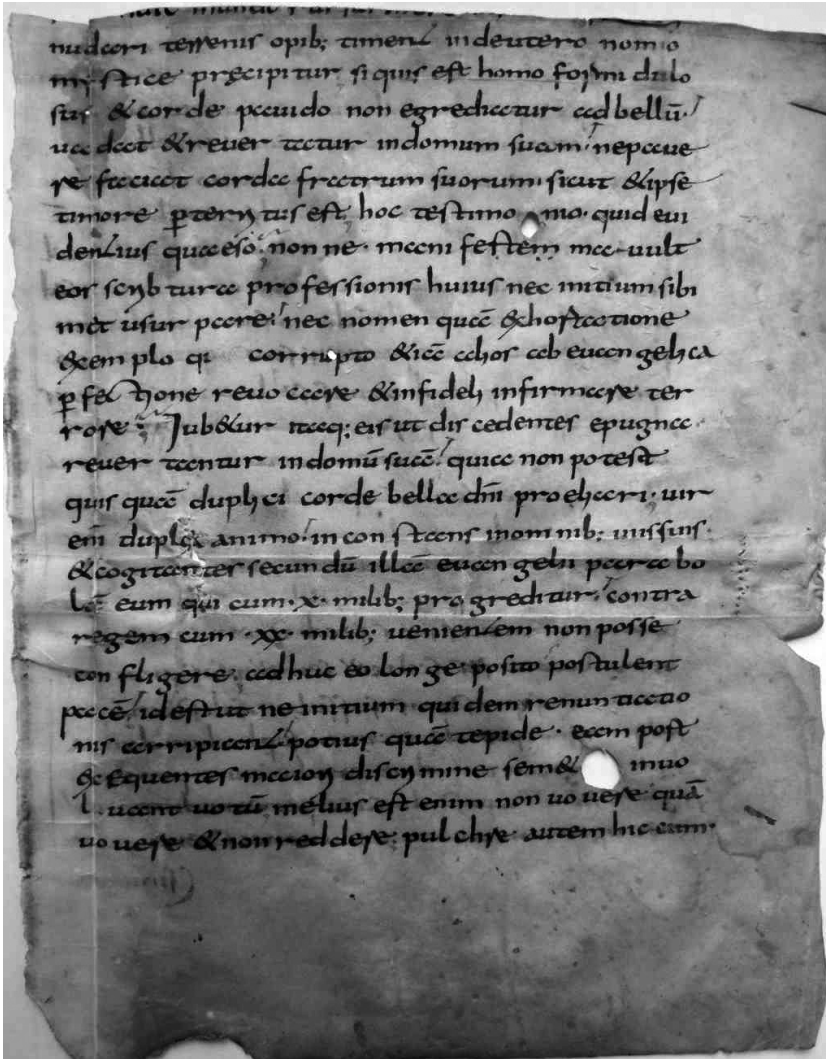 nudari terrenis opib; timent indeuteronomio
mystice pręcipitur si quis est homo formidulo
sus & corde pauido non egrediatur ad bellū.
uadat & reuertatur indomum suam. nepaue
re faciat corda fratrum suorum. sicut & ipse
timore ꝑterritus est, hoc testimonio. quid eui
dentius quaeso. non ne. manifestem ma uult
eos scribtura professionis huius nec initium sibi
met usurpare. nec nomen quā exhortatione
& exemplo corrupto & iā ahos ab euangelica
ꝑfectione reuocare & infideli infirmare ter
rore. Iub&ur itaq; eis ut discedentes epugna
reuertantur indomū suā. quia non potest
quis quā duplici corde bella dn̄i proeliari. uir
em̄ duplex animo. inconstans inomnib; uiis suis.
& cogitantes secundū illā euangelii para bo
lā eum qui cum .x. milib; progreditur. contra
regem cum .xx. milib; uenientem non posse
confligere. adhuc eo longe posito postulent
pacē. id est ut ne initium quidem renuntiatio
nis arripiant potius quā tepide. eam post
exequentes maiori discrimine sem& inuo
luant uotū melius est enim non uouere quā
uouere & non reddere. pulchre autem hic cum.